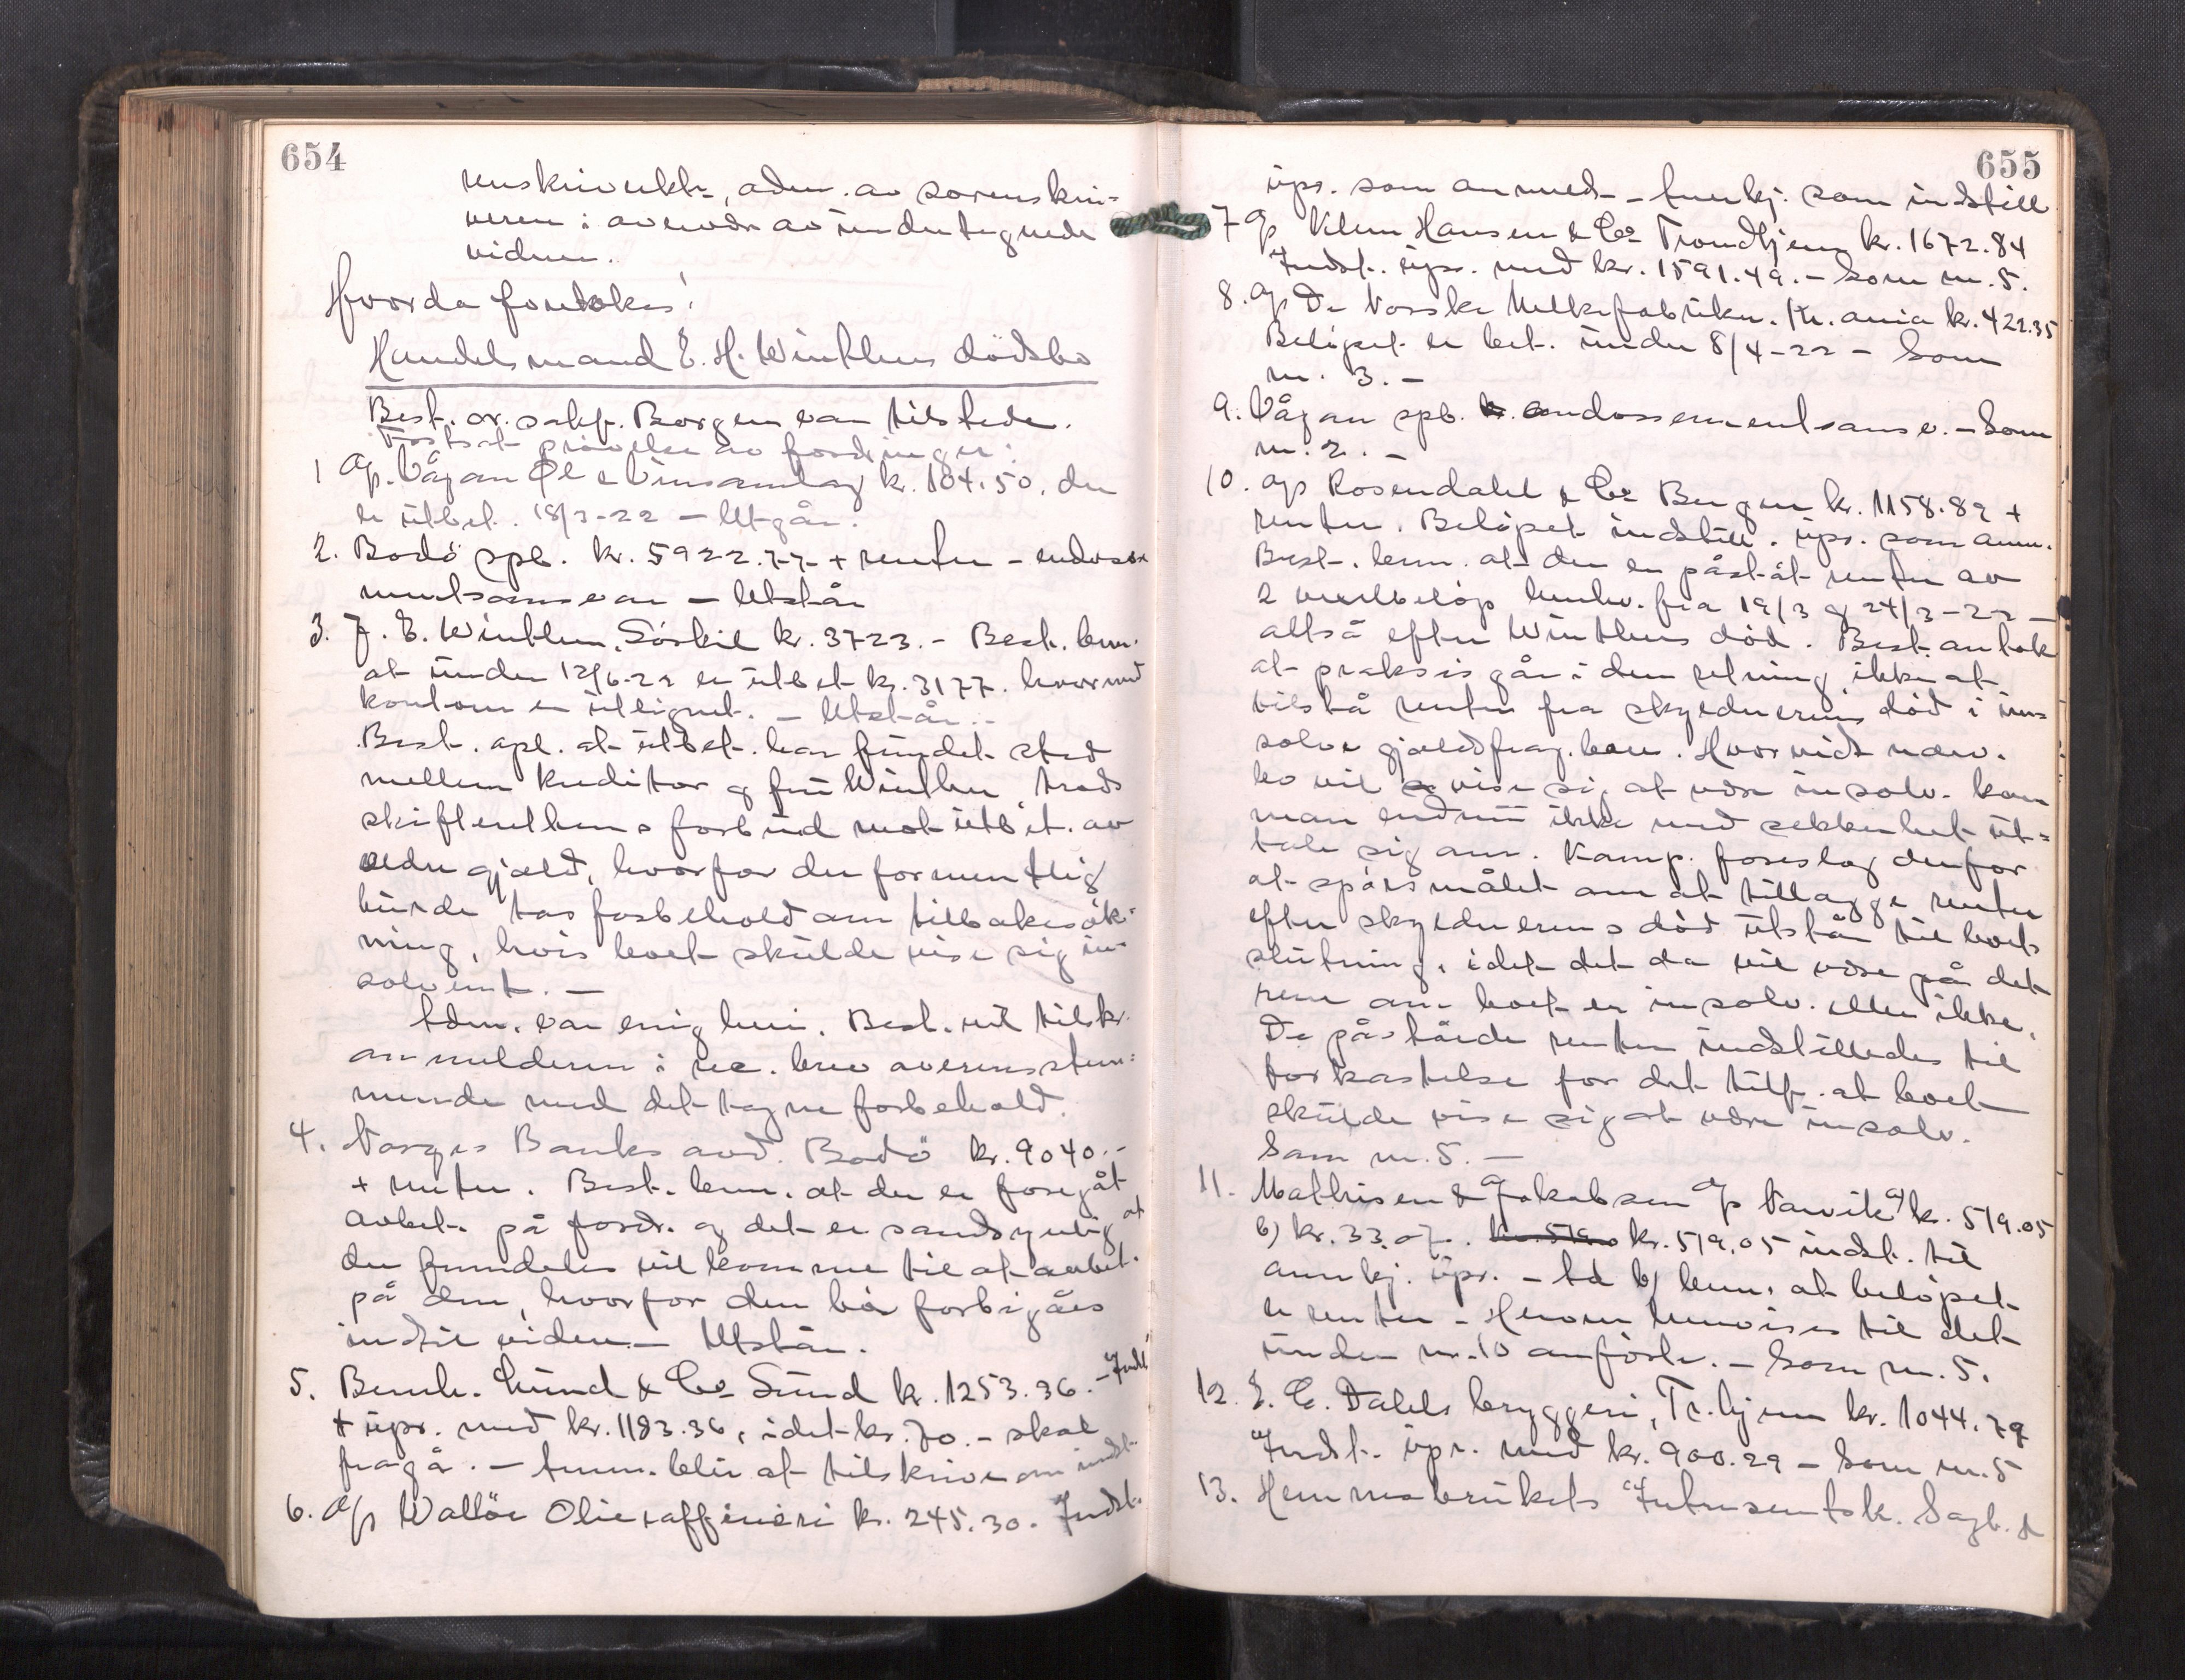 654
renskriverktr., adm. av sorenskri-
veren i overvær av undertegnede
vidner.
Hvorda foretokes:
Handelsmand E. H. Winthers dödsbo
Best. or. sakf. Borgen var tilstede.
Fortsat prövelse av fordringer:
1 A/s. Vågan Öl & Vinsamlag kr. 104.50. den
er utbet. 18/3-22 – Utgår.
2. Bodö spb. kr. 5922.77 + renter – endosse-
mentsansvar – Utstår
3. J. E. Winther, Sörkil kr. 3723.- Best. bem.
at under 12/6-22 er utbet kr. 3177. hvormed
kontoen er utlignet. – Utstår. -
Best. opl. at utbet. har fundet sted
mellem kreditor og fru Winther trods
skifterettens forbud mot utbet. av
ældre gjæld, hvorfor der formentlig
burde tas forbehold om tilbakesök-
ning, hvis boet skulde vise sig in-
solvent. –
Adm. var enig heri. Best. vil tilskr.
anmelderen i rec. brev overensstem-
mende med det tagne forbehold.
4. Norges Banks avd. Bodö kr. 9040.-
+ renter. Best. bem. at der er foregåt
avbet. på fordr. og det er sandsynlig at
der fremdeles vil komme til at avbet.
på den, hvorfor den bör forbigåes
indtil videre – Utstår.
5. Bernh. Lund & Co Sund kr. 1253.36. – Indst
+ upr. med kr. 1183.36, idet kr. 70.- skal
fragå. – Anm. blir at tilskrive om indst.
6. A/s Wallöe Olieraffineri kr. 245.30. Indst.
655
upr. som anmeldt – Anerkj. som indstill
7 A/s Klem Hansen & Co Trondhjem kr. 1672.84
Indst. upr. med kr. 1591.49. – Som nr. 5.
8. A/s De Norske Melkefabriker. Kr.ania kr. 422.35
Belöpet er bet. under 8/4-22 – Som
nr. 3. –
9. Vågan spb. endossementsansv. – Som
nr. 2. –
10. A/s Rosendahl & Co Bergen kr. 1158.82 +
renter. Belöpet indstill. upr. som anm.
Best. bem. at der er påståt renter av
2 vexelbelöp henhv. fra 19/3 og 24/3-22 –
altså efter Winthers död. Best. antok
at praksis går i den retning, ikke at
tilstå renter fra skyldnerens död i in-
solv. gjældsfrag. boer. Hvorvidt nærv.
bo vil vise sig at være insolv. kan
man endnu ikke med sikkerhet ut-
tale sig om. Komp. foreslog derfor
at spörsmålet om at tillægge renter
efter skyldnerens död utstår til boets
slutning, idet det da vil være på det
rene om boet er insolv. eller ikke.
De påståede renter indstilledes til
forkastelse for det tilf. at boet
skulde vise sig at være insolv.
Som nr. 5. –
11. Mathisen & Jakobsen A/s Narvik a) kr. 519.05
b) kr. 33.07. kr. 519.05 indst. til
anerkj. upr. – Ad b) bem. at belöpet
er renter – Herom henvises til det
under nr. 10 anförte. – Som nr. 5.
12. E. C. Dahls bryggeri, Tr.hjem kr. 1044.79
Indst. upr. med kr. 900.29 – Som nr. 5
13. Hemnesbrukets Interessentsk. Sagb. &